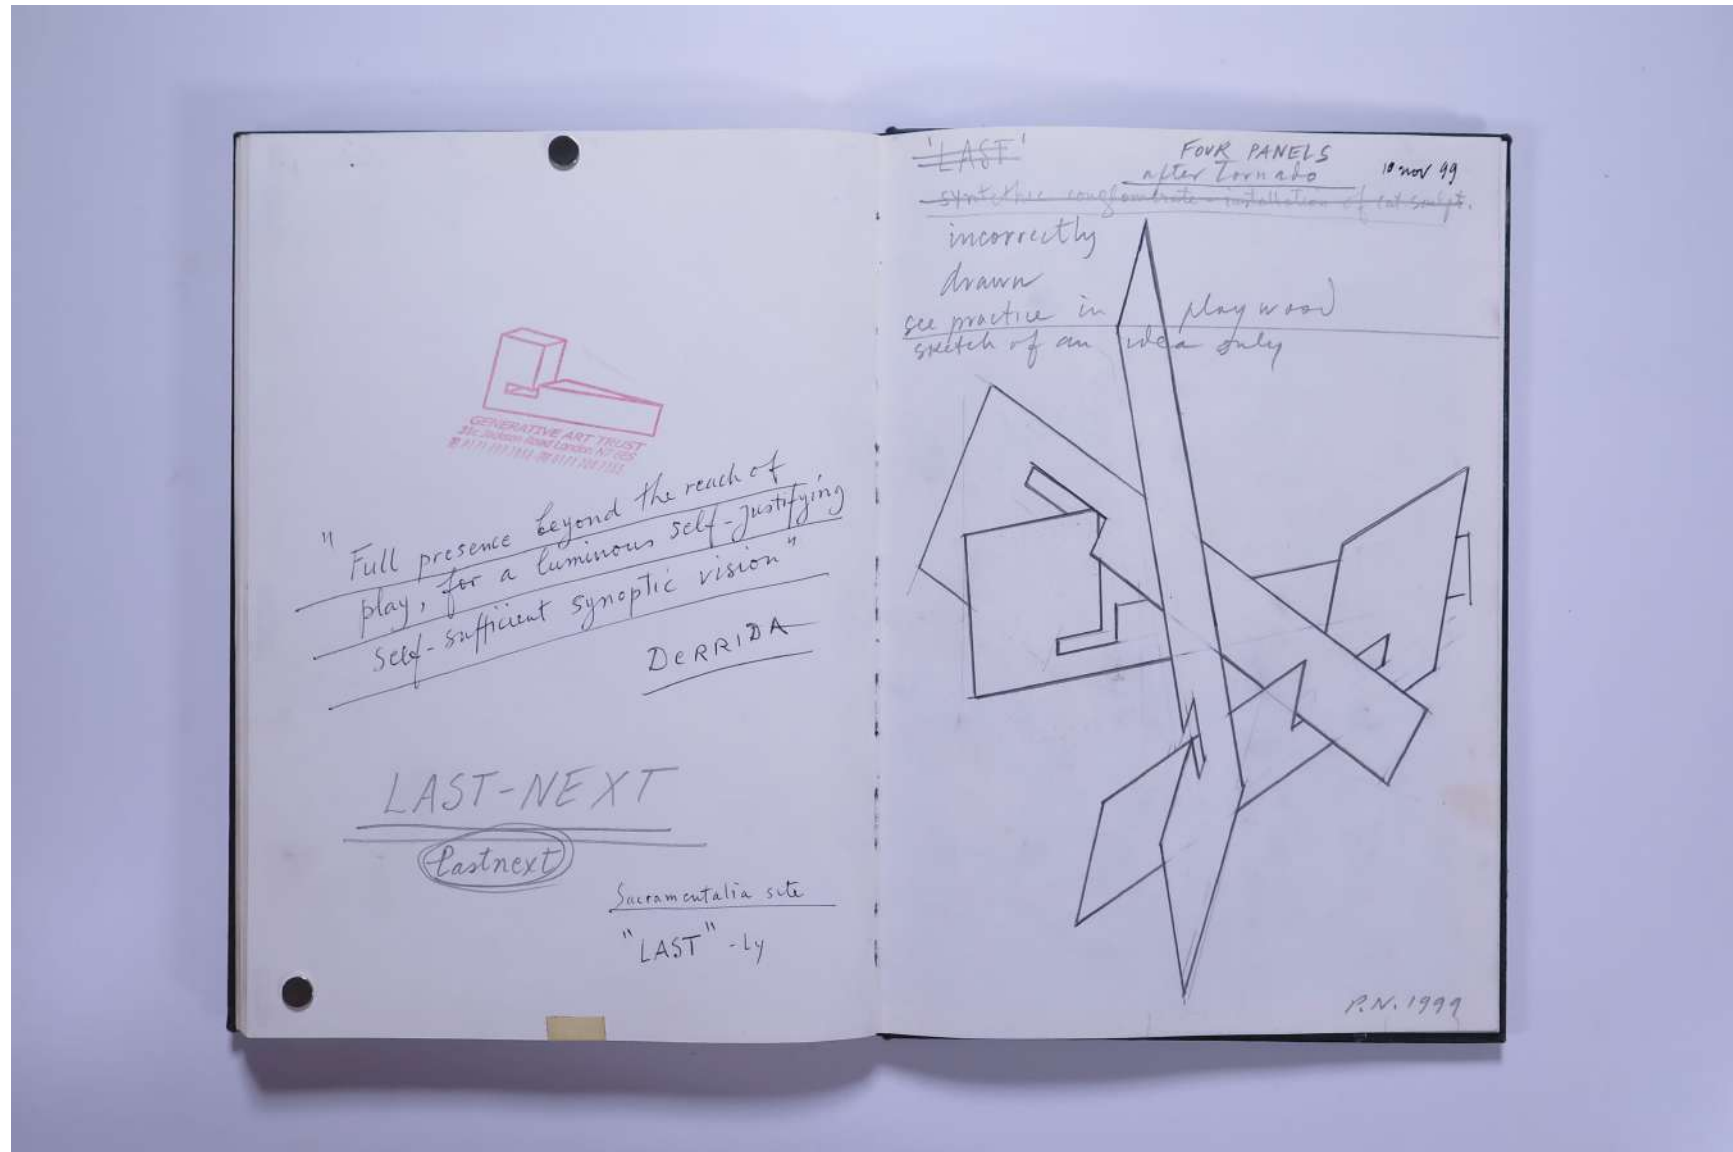 GENERATIVE ART TRUST
Road London N7 6ES
" Full presence beyond the reach of
play, for a luminous self-justifying
self-sufficient synoptic vision"
DERRIDA
LAST-NEXT
Lastnext
Sacramentalia site
"LAST" -Ly
'LAST'
FOUR PANELS
after Tornado
10 nov 99
synthtic conglomerate - installation of cat sculpt.
incorrectly
drawn
see practice in playwood
sketch of an idea only
P.N. 1999